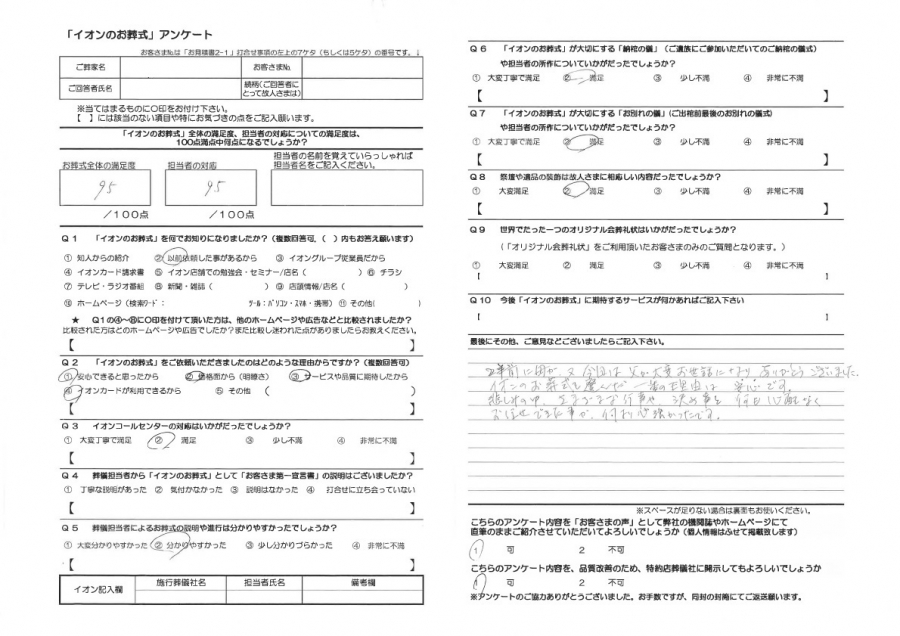 「イオンのお葬式」アンケート
お客さまNo.は「お見積書2-1」打合せ事項の左上の7ケタ（もしくは5ケタ）の番号です。↓
ご葬家名　お客さまNo.
ご回答者氏名　続柄(ご回答者にとって故人さまは)
※当てはまるものに○印をお付け下さい。
【　】には該当のない項目や特にお気づきの点をご記入願います。
「イオンのお葬式」全体の満足度、担当者の対応についての満足度は、
100点満点中何点になるでしょうか？
お葬式全体の満足度　担当者の対応　担当者の名前を覚えていらっしゃれば
担当者名をご記入ください。
95　95
/100点　/100点
Q１　「イオンのお葬式」を何でお知りになりましたか？（複数回答可，（　）内もお答え願います）
① 知人からの紹介　② 以前依頼した事があるから　③ イオングループ従業員だから
④ イオンカード請求書　⑤ イオン店舗での勉強会・セミナー/店名（　）⑥ チラシ
⑦ テレビ・ラジオ番組　⑧ 新聞・雑誌（　）⑨ 店頭情報/店名（　）
⑩ ホームページ（検索ﾜｰﾄﾞ：　ﾂｰﾙ：ﾊﾟｿｺﾝ・ｽﾏﾎ・携帯）⑪ その他(　)
★　Q１の④～⑩に○印を付けて頂いた方は、他のホームページや広告などと比較されましたか？
比較された方はどのホームページや広告でしたか？また比較し迷われた点がありましたらお教えください。
【　】
Q２　「イオンのお葬式」をご依頼いただきましたのはどのような理由からですか？（複数回答可）
① 安心できると思ったから　② 価格面から（明瞭さ）　③ サービスや品質に期待したから
④ イオンカードが利用できるから　⑤ その他（　）
Q３　イオンコールセンターの対応はいかがだったでしょうか？
① 大変丁寧で満足　② 満足　③ 少し不満　④ 非常に不満
【　】
Q４　葬儀担当者から「イオンのお葬式」として「お客さま第一宣言書」の説明はございましたか？
① 丁寧な説明があった　② 気付かなかった　③ 説明はなかった　④ 打合せに立ち会っていない
【　】
Q５　葬儀担当者によるお葬式の説明や進行は分かりやすかったでしょうか？
① 大変分かりやすかった　② 分かりやすかった　③ 少し分かりづらかった　④ 非常に不満
【　】
イオン記入欄　施行葬儀社名　担当者氏名　備考欄
Q６　「イオンのお葬式」が大切にする「納棺の儀」（ご遺族にご参加いただいてのご納棺の儀式）
や担当者の所作についていかがだったでしょうか？
① 大変丁寧で満足　② 満足　③ 少し不満　④ 非常に不満
【　】
Q７　「イオンのお葬式」が大切にする「お別れの儀」（ご出棺前最後のお別れの儀式）
や担当者の所作についていかがだったでしょうか？
① 大変丁寧で満足　② 満足　③ 少し不満　④ 非常に不満
【　】
Q８　祭壇や遺品の装飾は故人さまに相応しい内容だったでしょうか？
① 大変満足　② 満足　③ 少し不満　④ 非常に不満
【　】
Q９　世界でたった一つのオリジナル会葬礼状はいかがだったでしょうか？
（「オリジナル会葬礼状」をご利用頂いたお客さまのみのご質問となります。）
① 大変満足　② 満足　③ 少し不満　④ 非常に不満
【　】
Q１０　今後「イオンのお葬式」に期待するサービスが何かあればご記入下さい
【　】
最後にその他、ご意見などございましたらご記入下さい。
年前に母が、又今回は父が大変お世話になり ありがとうございました。
イオンのお葬式を選んだ一番の理由は 安心です。
悲しみの中、さまざまな行事や、決め事を 何も心配なく
お任せできた事が、何より心強かったです。
※スペースが足りない場合は裏面もお使いください。
こちらのアンケート内容を「お客さまの声」として弊社の機関誌やホームページにて
直筆のままご紹介させていただいてよろしいでしょうか（個人情報はふせて掲載致します）
1　可　2　不可
こちらのアンケート内容を、品質改善のため、特約店葬儀社に開示してもよろしいでしょうか
1　可　2　不可
※アンケートのご協力ありがとうございました。お手数ですが、同封の封筒にてご返送願います。